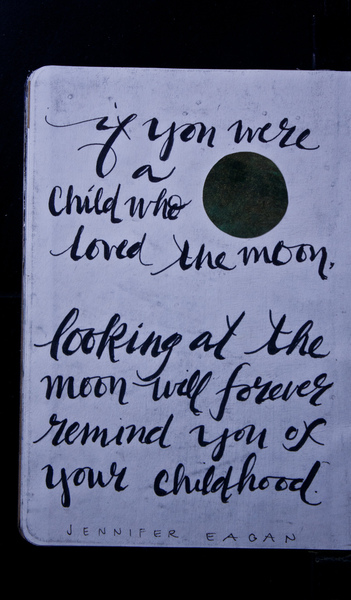 if you were
a
child who
loved the moon,
looking at the
moon will forever
remind you of
your childhood.
JENNIFER EAGAN